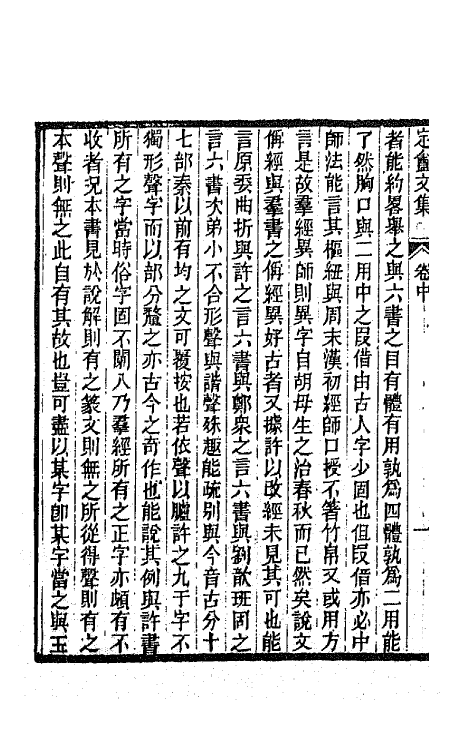 定盦文集 卷中
者能約略舉之與六書之目有體有用孰爲四體孰爲二用能
了然胸口與二用中之叚借由古人字少固也但叚借亦必中
師法能言其樞紐與周末漢初經師口授不箸竹帛又或用方
言是故羣經異師則異字自胡毋生之治春秋而已然矣說文
偁經與羣書之偁經異好古者又據許以改經未見其可也能
言原委曲折與許之言六書與鄭衆之言六書與劉歆班固之
言六書次弟小不合形聲與諧聲殊趣能疏別與今音古分十
七部秦以前有均之文可覆按也若依聲以臚許之九千字不
獨形聲字而以部分𨤲之亦古今之奇作也能說其例與許書
所有之字當時俗字固不闌入乃羣經所有之正字亦頗有不
收者況本書見於說解則有之篆文則無之所從得聲則有之
本聲則無之此自有其故也豈可盡以某字卽某字當之與玉